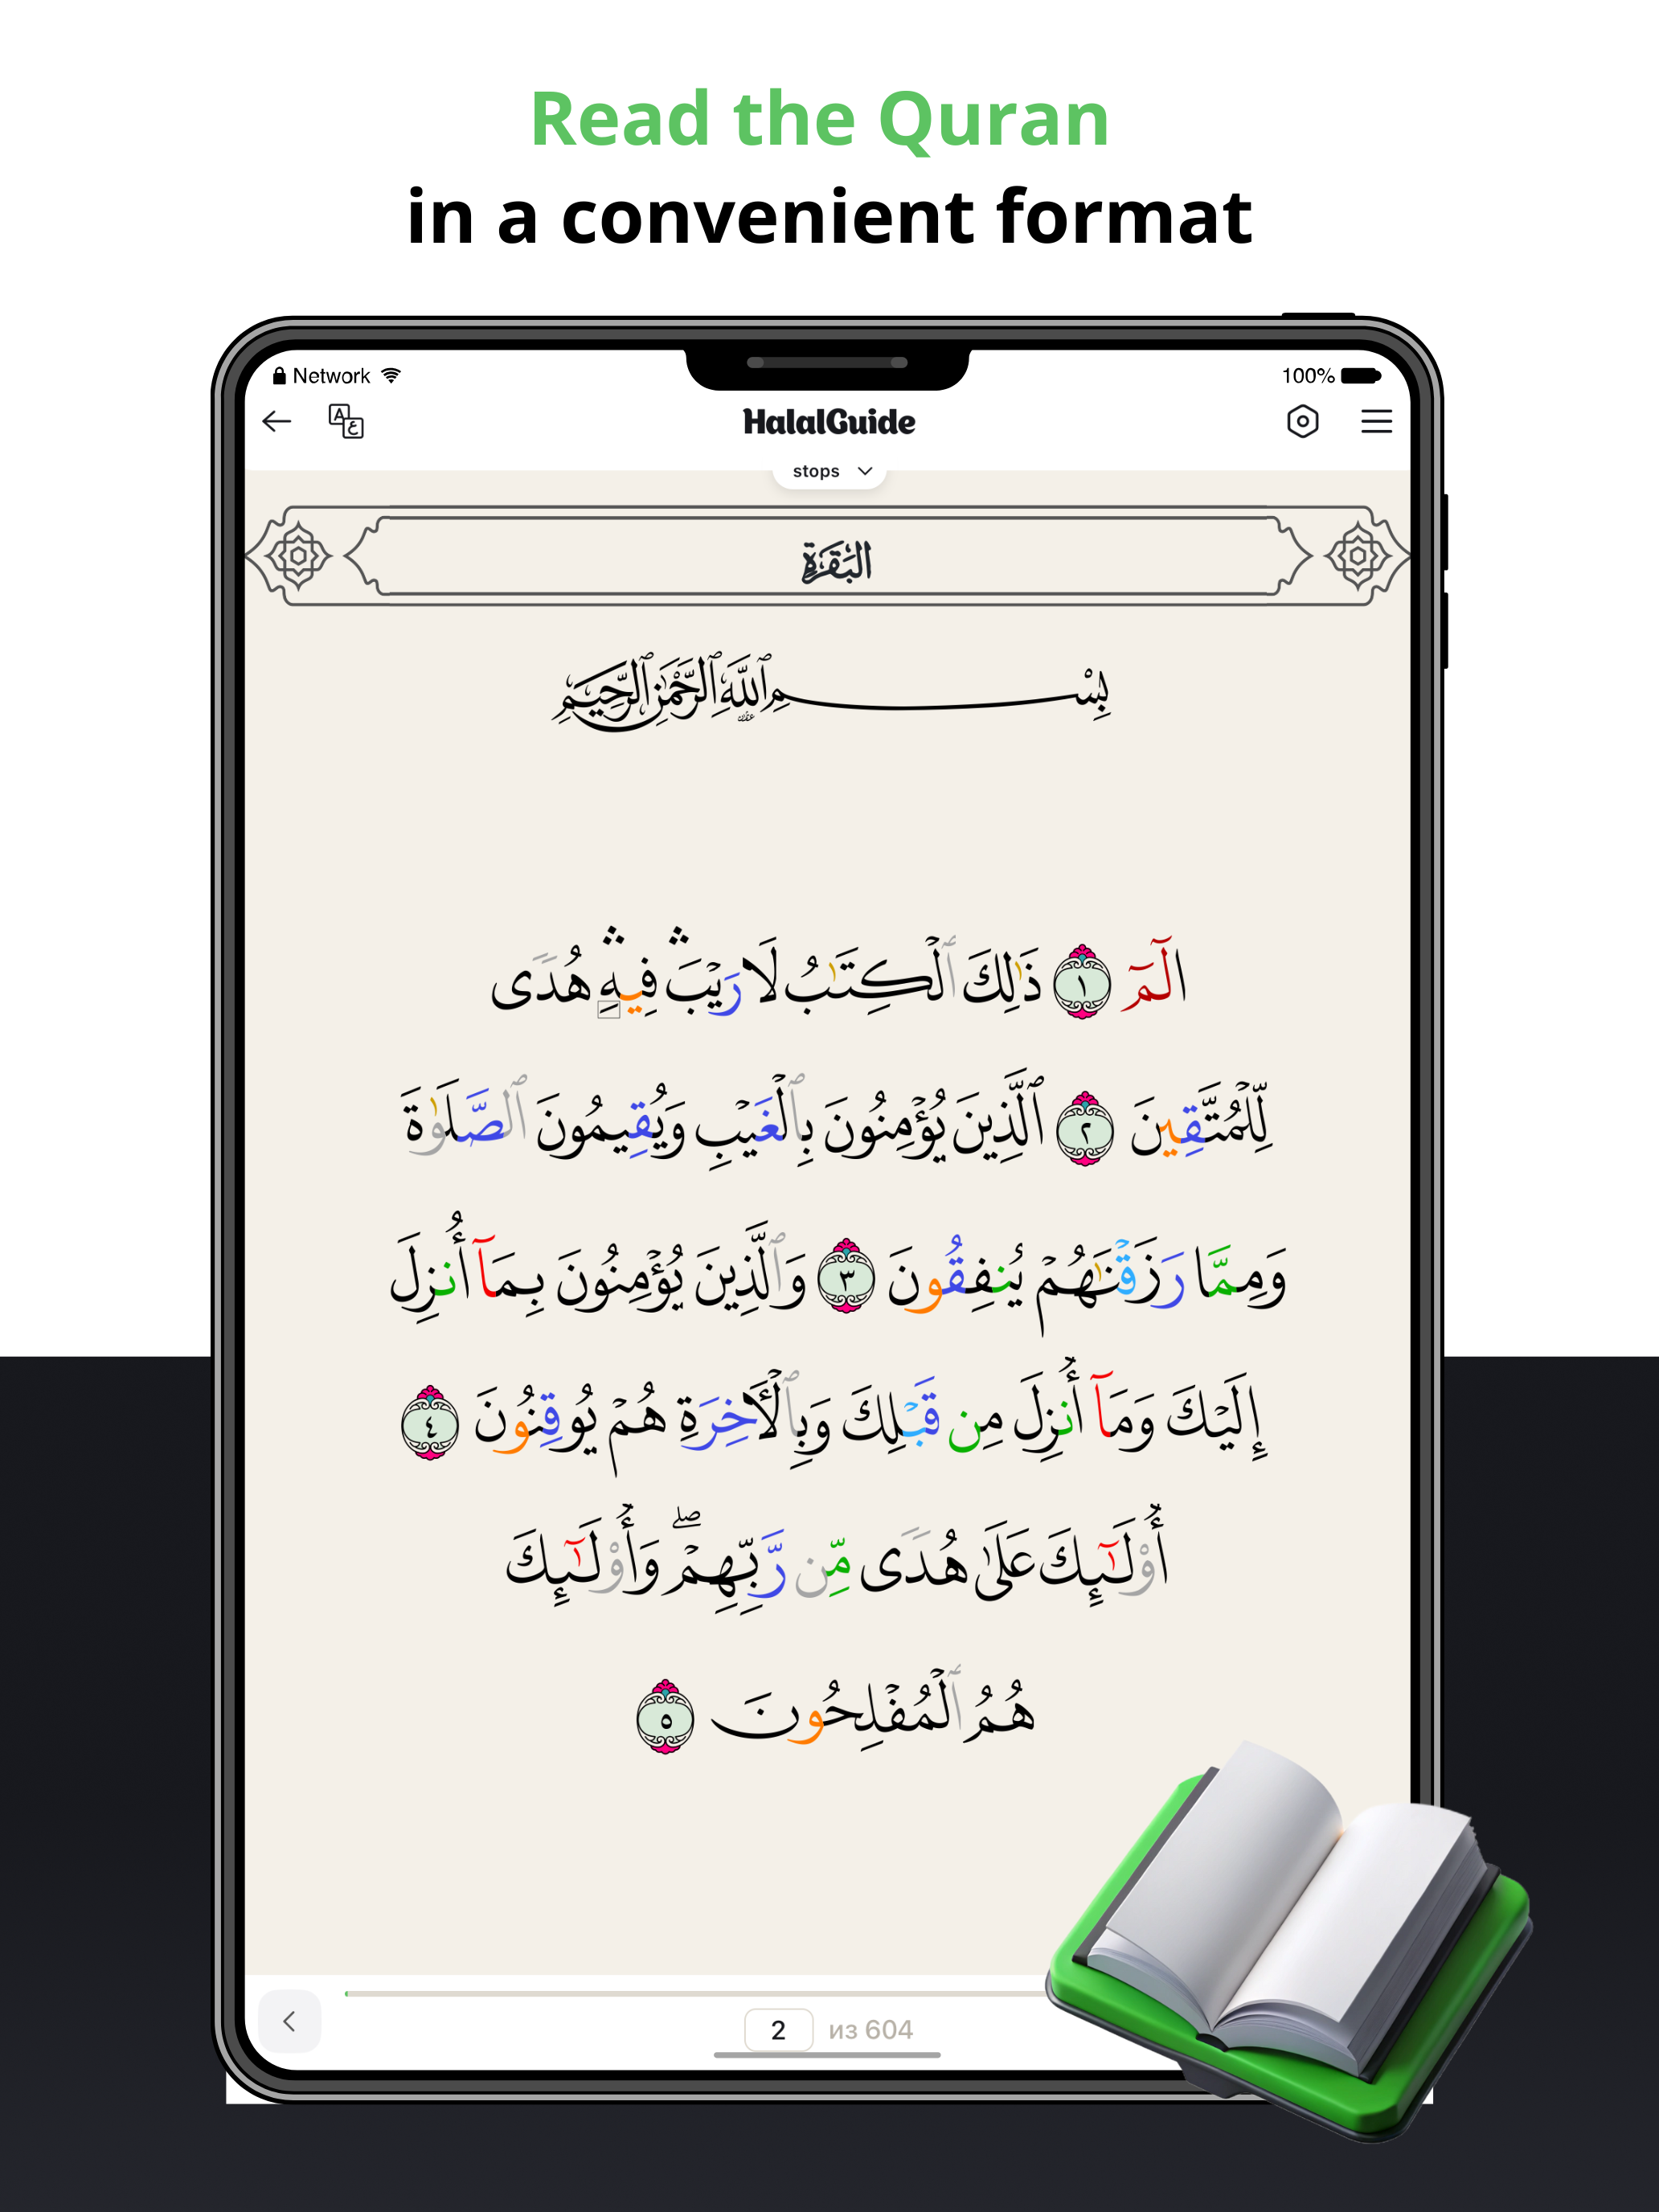 Read the Quran
in a convenient format
Network 100%
HalalGuide
stops
البَقَرَةِ
بِسْمِ ٱللَّهِ ٱلرَّحْمَٰنِ ٱلرَّحِيمِ
الٓمٓ ١ ذَٰلِكَ ٱلْكِتَٰبُ لَا رَيْبَ ۛ فِيهِ ۛ هُدًى
لِّلْمُتَّقِينَ ٢ ٱلَّذِينَ يُؤْمِنُونَ بِٱلْغَيْبِ وَيُقِيمُونَ ٱلصَّلَوٰةَ
وَمِمَّا رَزَقْنَٰهُمْ يُنفِقُونَ ٣ وَٱلَّذِينَ يُؤْمِنُونَ بِمَآ أُنزِلَ
إِلَيْكَ وَمَآ أُنزِلَ مِن قَبْلِكَ وَبِٱلْأَخِرَةِ هُمْ يُوقِنُونَ ٤
أُوْلَٰٓئِكَ عَلَىٰ هُدًى مِّن رَّبِّهِمْ ۖ وَأُوْلَٰٓئِكَ
هُمُ ٱلْمُفْلِحُونَ ٥
2 из 604